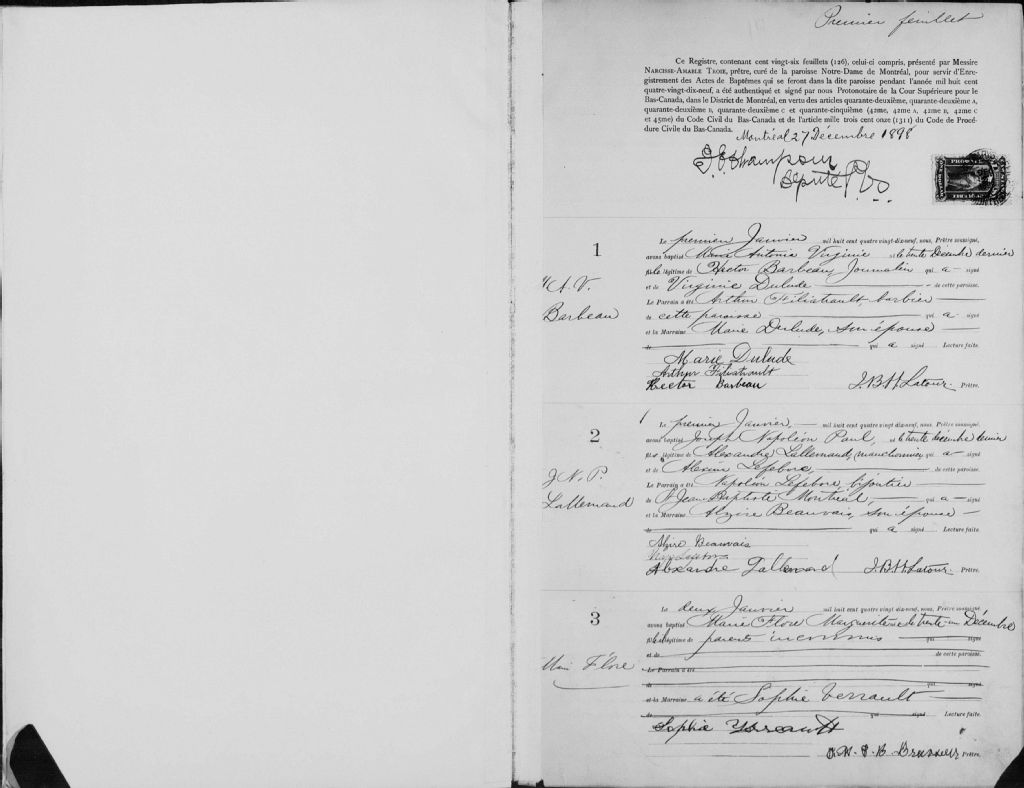 Premier feuillet
Ce Registre, contenant cent vingt-six feuillets (126), celui-ci compris, présenté par Messire
Narcisse-Amable Troie, prêtre, curé de la paroisse Notre-Dame de Montréal, pour servir d'Enre-
gistrement des Actes de Baptêmes qui se feront dans la dite paroisse pendant l'année mil huit cent
quatre-vingt-dix-neuf, a été authentiqué et signé par nous Protonotaire de la Cour Supérieure pour le
Bas-Canada, dans le District de Montréal, en vertu des articles quarante-deuxième, quarante-deuxième A,
quarante-deuxième B, quarante-deuxième C et quarante-cinquième (42me, 42me A, 42me B, 42me C
et 45me) du Code Civil du Bas-Canada et de l'article mille trois cent onze (1311) du Code de Procé-
dure Civile du Bas-Canada.
Montréal 27 Décembre 1898
Député P.
1
M. A. V.
Barbeau
Le premier Janvier mil huit cent quatre vingt-dix-neuf, nous, Prêtre soussigné,
avons baptisé Marie Antonia Virginie née le trente Décembre dernier
fille légitime de Hector Barbeau, Journalier qui a signé
et de Virginie Dulude de cette paroisse.
Le Parrain a été Arthur Filiatrault barbier
de cette paroisse qui a signé
et la Marraine Marie Dulude, son épouse
de qui a signé Lecture faite.
Marie Dulude
Arthur Filiatrault
Hector Barbeau J. B. H. Latour Prêtre.
2
J. N. P.
Lallemand
Le premier Janvier, mil huit cent quatre vingt-dix-neuf, nous, Prêtre soussigné,
avons baptisé Joseph Napoléon Paul, né le trente décembre dernier
fils légitime de Alexandre Lallemand, manchonnier qui a signé
et de Alexina Lefebvre, de cette paroisse.
Le Parrain a été Napoléon Lefebvre, bijoutier
de St Jean-Baptiste Montréal, qui a signé
et la Marraine Alzire Beauvais, son épouse
de qui a signé Lecture faite.
Alzire Beauvais
Alexandre Lallemand J. B. H. Latour Prêtre.
3
Marie Flore
Le deux Janvier mil huit cent quatre vingt-dix-neuf, nous, Prêtre soussigné,
avons baptisé Marie Flore Marguerite née le trente un Décembre
fille légitime de parents inconnus qui signé
et de de cette paroisse.
Le Parrain a été
de qui signé
et la Marraine a été Sophie Verrault
de qui signé Lecture faite.
Sophie
Prêtre.